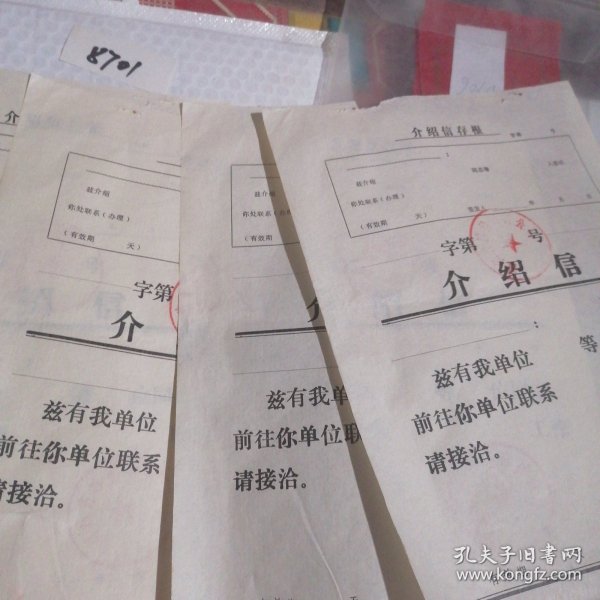 8701
介绍信存根
字第 号
：
兹介绍 同志等 人前往
你处联系(办理)
(有效期 天) 签发人 年 月 日
字第 号
介绍信
：
兹有我单位 等
前往你单位联系
请接洽。
介
兹介绍
你处联系(办理)
(有效期
介
兹有我单
前往你单位联
请接洽。
介
兹介绍
你处联系(办理)
(有效期 天)
字第
介
兹有我单位
前往你单位联系
请接洽。
孔夫子旧书网
www.kongfz.com